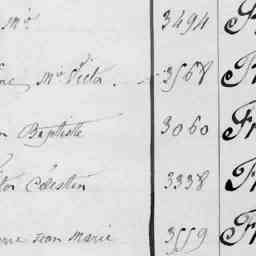 Mie 3494 F
Mie Victa. 3568 Fr
n Baptiste 3060 Fr
tor Célestin 3338 Fr
nne Jean Marie 3559 Fr